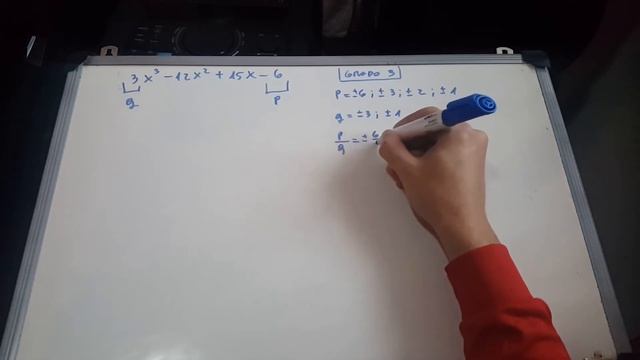 3x³ - 12x² + 15x - 6
q p
GRADO 3
P = ±6 ; ±3 ; ±2 ; ±1
q = ±3 ; ±1
P/q = ± 6